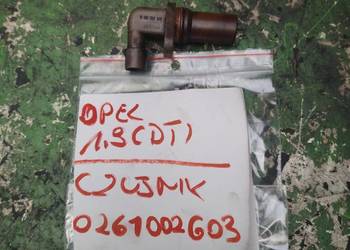 OPEL
1.9 CDTI
CZUJNIK
0261002603